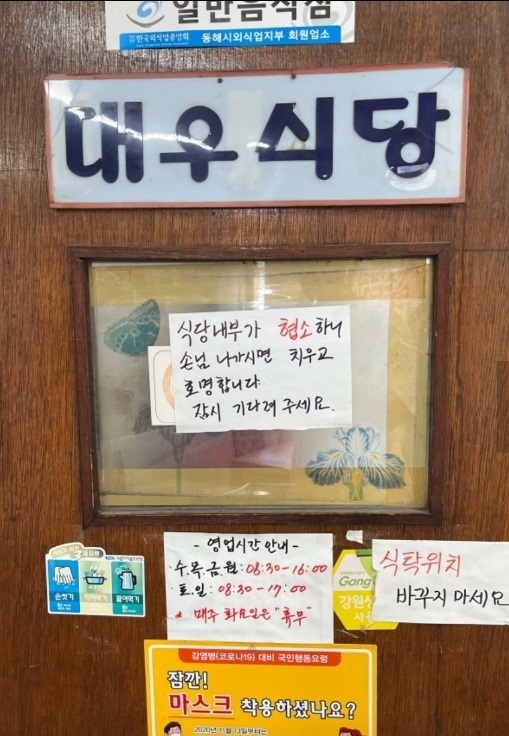 일반음식점
한국외식업중앙회 동해시외식업지부 회원업소
대우식당
식당내부가 협소하니
손님 나가시면 치우고
호명합니다.
잠시 기다려 주세요.
- 영업시간 안내 -
수.목.금.월: 08:30-16:00
토.일: 08:30-17:00
* 매주 화요일은 "휴무"
손씻기
익혀먹기
끓여먹기
Gang
강원상
사용
식탁위치
바꾸지 마세요
감염병(코로나19) 대비 국민행동요령
잠깐!
마스크 착용하셨나요?
2020년 11월 13일부터는